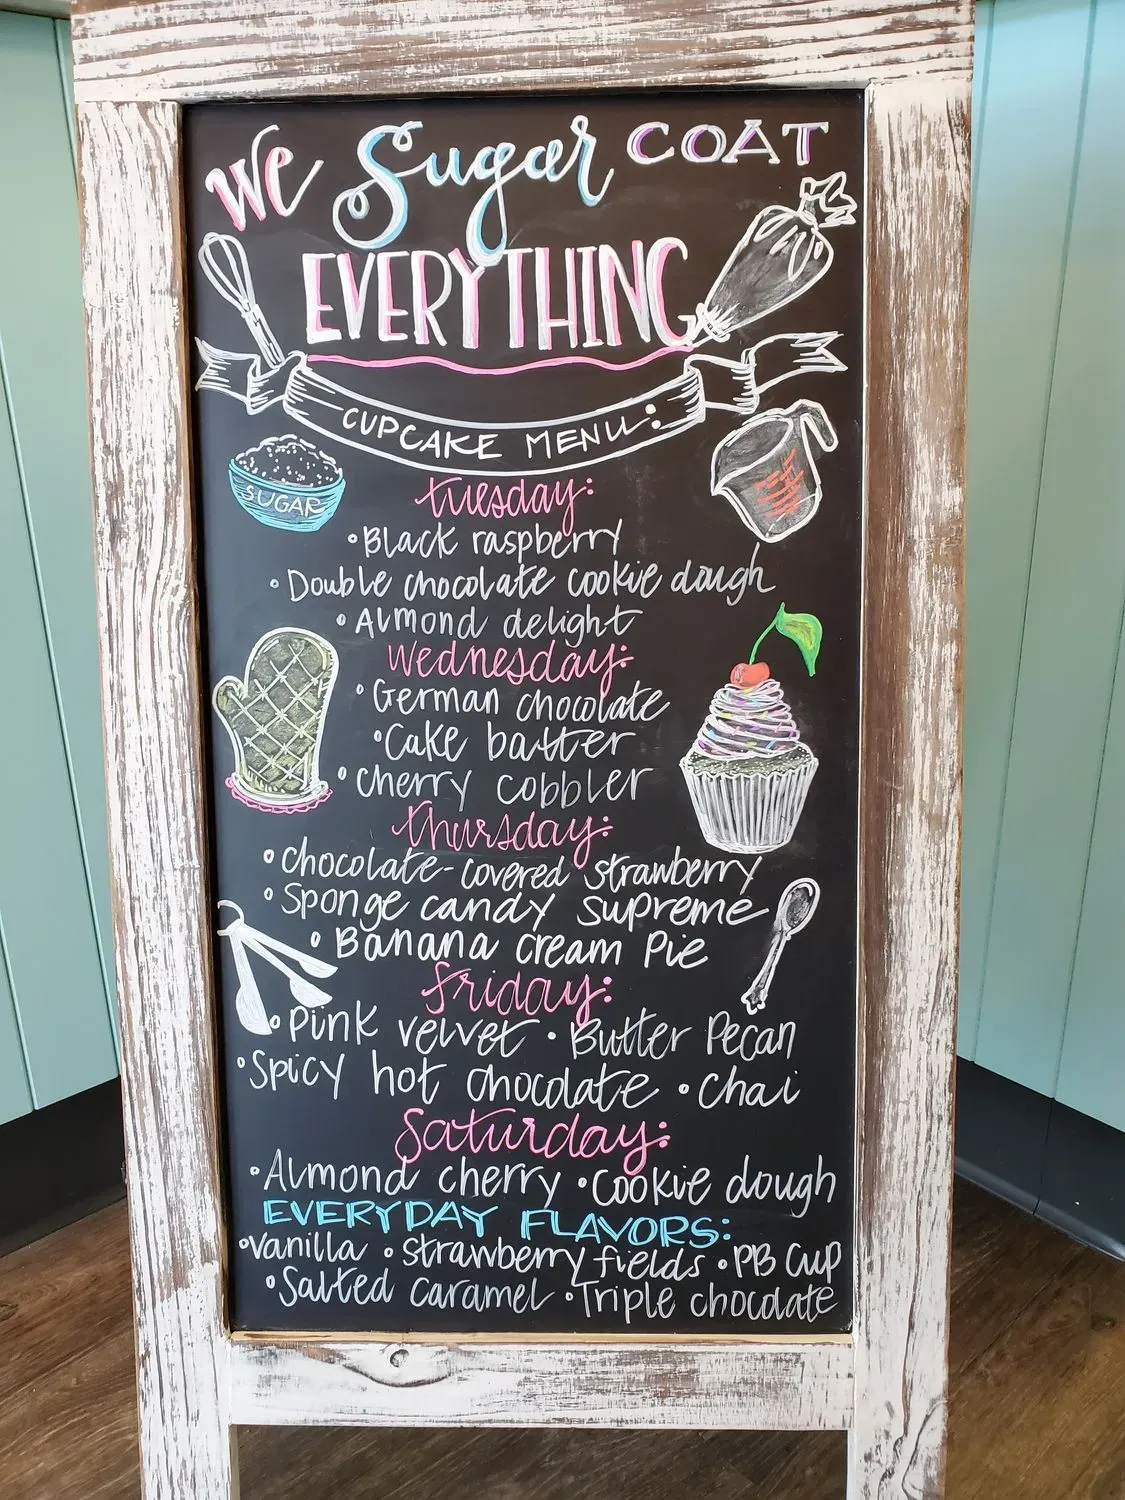 We Sugar COAT
EVERYTHING
CUPCAKE MENU:
SUGAR
Tuesday:
•Black raspberry
•Double chocolate cookie dough
•Almond delight
Wednesday:
•German chocolate
•Cake batter
•Cherry cobbler
Thursday:
•Chocolate-covered strawberry
•Sponge candy supreme
•Banana cream Pie
Friday:
•Pink velvet •Butter Pecan
•Spicy hot chocolate •Chai
Saturday:
•Almond cherry •Cookie dough
EVERYDAY FLAVORS:
•Vanilla •Strawberry fields •PB Cup
•Salted caramel •Triple chocolate